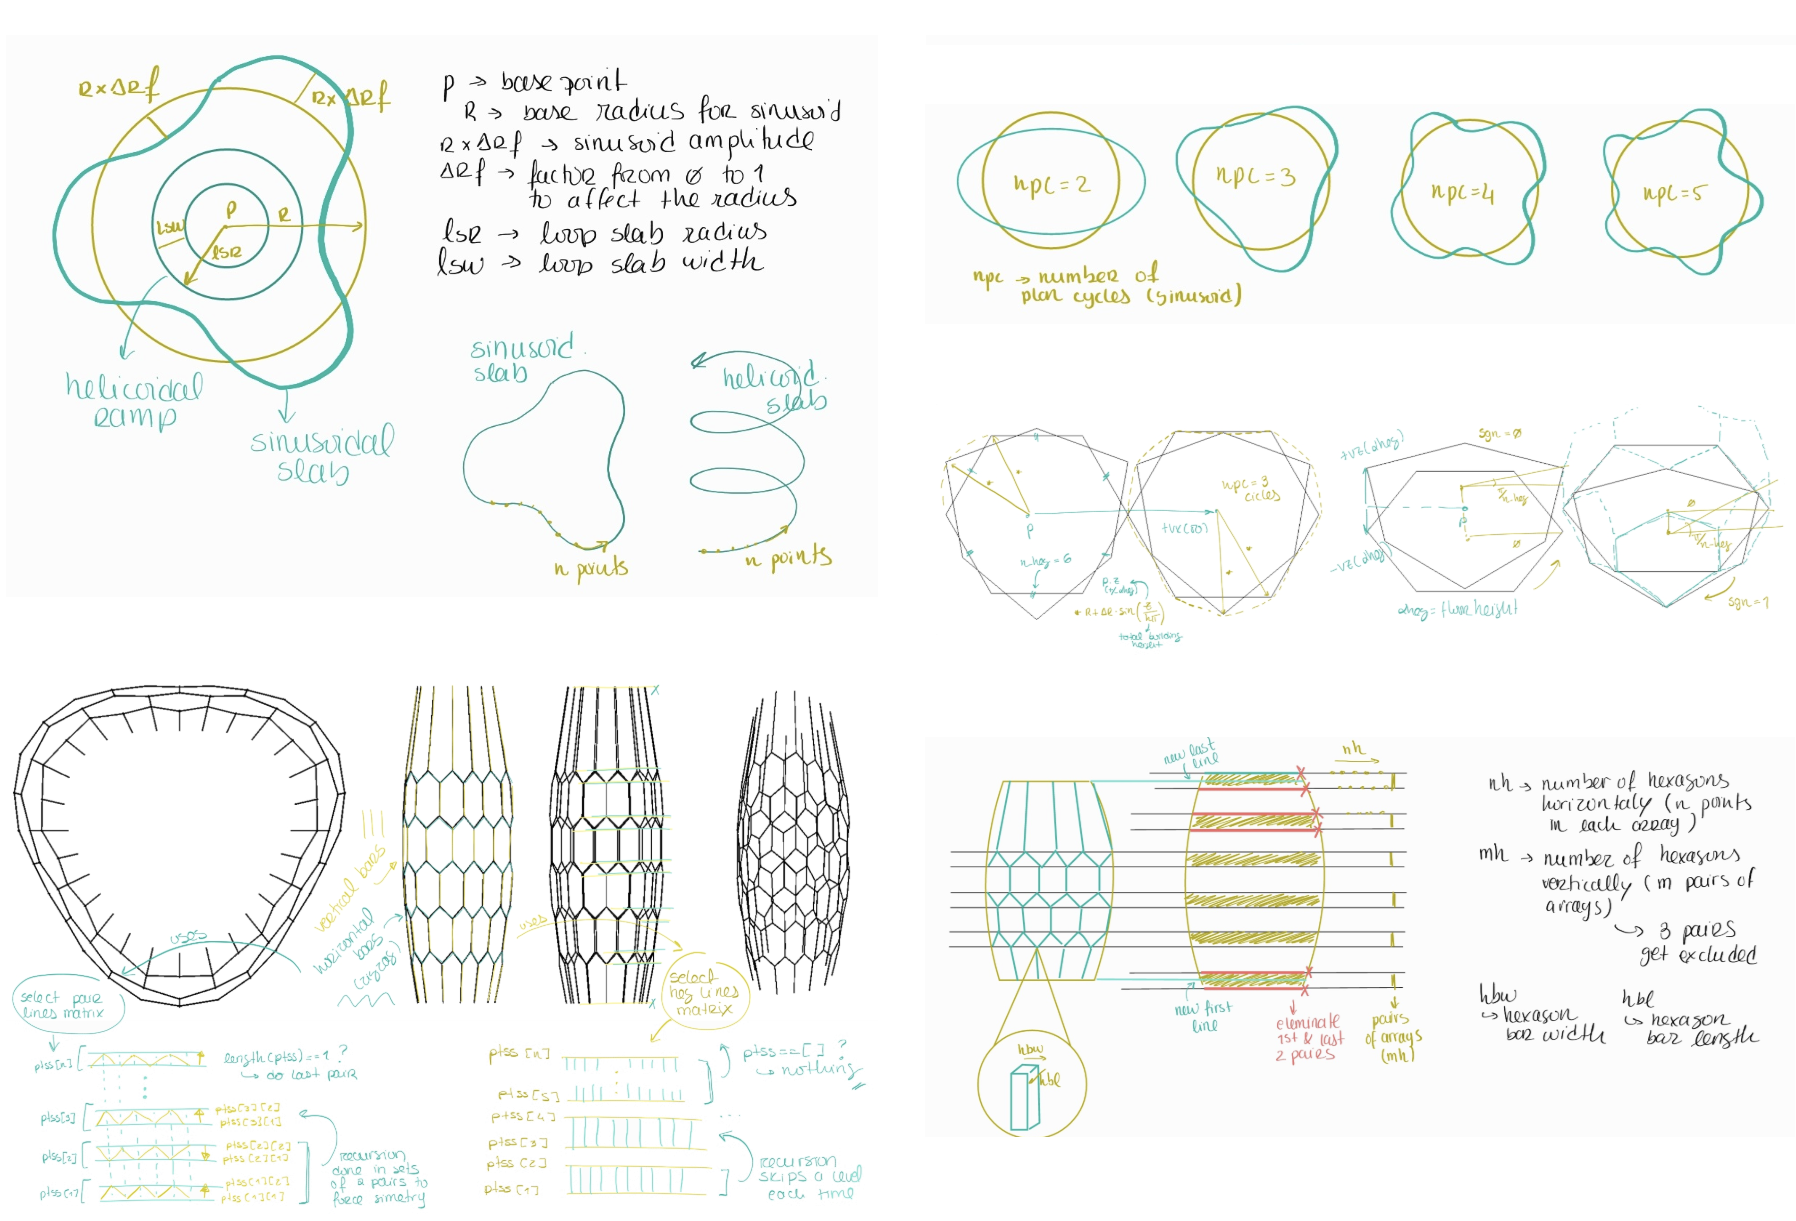 R×ΔRf
R×ΔRf
P
R
lsw
lsR
helicoidal
ramp
sinusoidal
slab
P → base point
R → base radius for sinusoid
R×ΔRf → sinusoid amplitude
ΔRf → factor from ø to 1
to affect the radius
lsR → loop slab radius
lsw → loop slab width
sinusoid
slab
n points
helicoid
slab
n points
npc=2
npc=3
npc=4
npc=5
npc → number of
plan cycles (sinusoid)
P
n-hog=6
npc=3
cicles
total building
height
+vz(dhog)
-vz(dhog)
P
ø
dhog=floor height
sgn=ø
ø
sgn=1
uses
select pair
lines matrix
vertical bars
horizontal
bars
uses
select
hog lines
matrix
ptss[n]
length(ptss)==1?
↳ do last pair
ptss[3]
ptss[3][2]
ptss[3][1]
ptss[2]
ptss[2][2]
ptss[2][1]
ptss[1]
ptss[1][2]
ptss[1][1]
recursion
done in sets
of 2 pairs to
force simetry
ptss[n]
ptss[5]
ptss[4]
ptss[3]
ptss[2]
ptss[1]
ptss==[]?
↳ nothing
recursion
skips a level
each time
new last
line
nh
new first
line
eleminate
1st & last
2 pairs
pairs
of arrays
(mh)
hbw
hbl
nh → number of hexagons
horizontaly (n points
in each array)
mh → number of hexagons
vertically (m pairs of
arrays)
↳ 3 pairs
get excluded
hbw
↳ hexagon
bar width
hbl
↳ hexagon
bar length